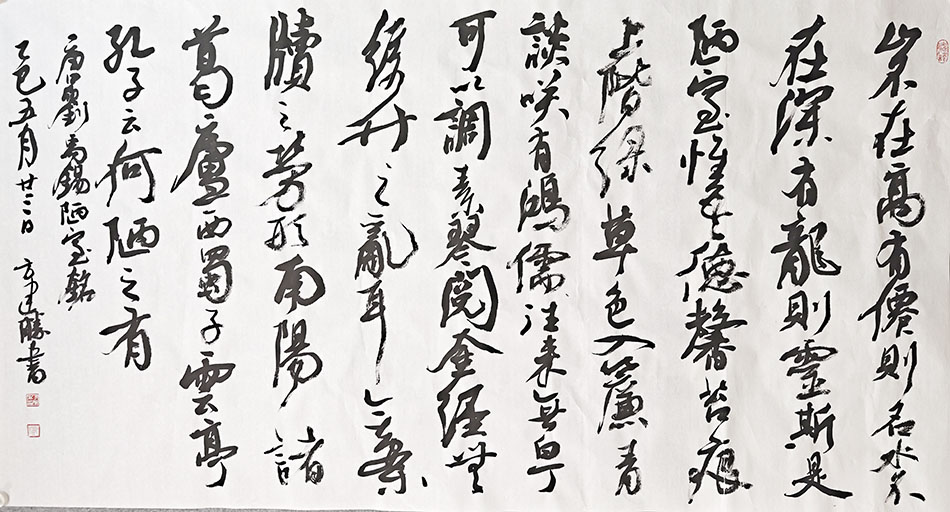 山不在高有僊則名水不
在深有龍則靈斯是
陋室惟吾德馨苔痕
上階綠草色入簾青
談咲有鴻儒往来無白丁
可以調素琴閱金經無
絲竹之亂耳無案
牘之勞形南陽諸
葛廬西蜀子雲亭
孔子云何陋之有
唐劉禹錫陋室銘
乙巳五月廿三日 建勝書